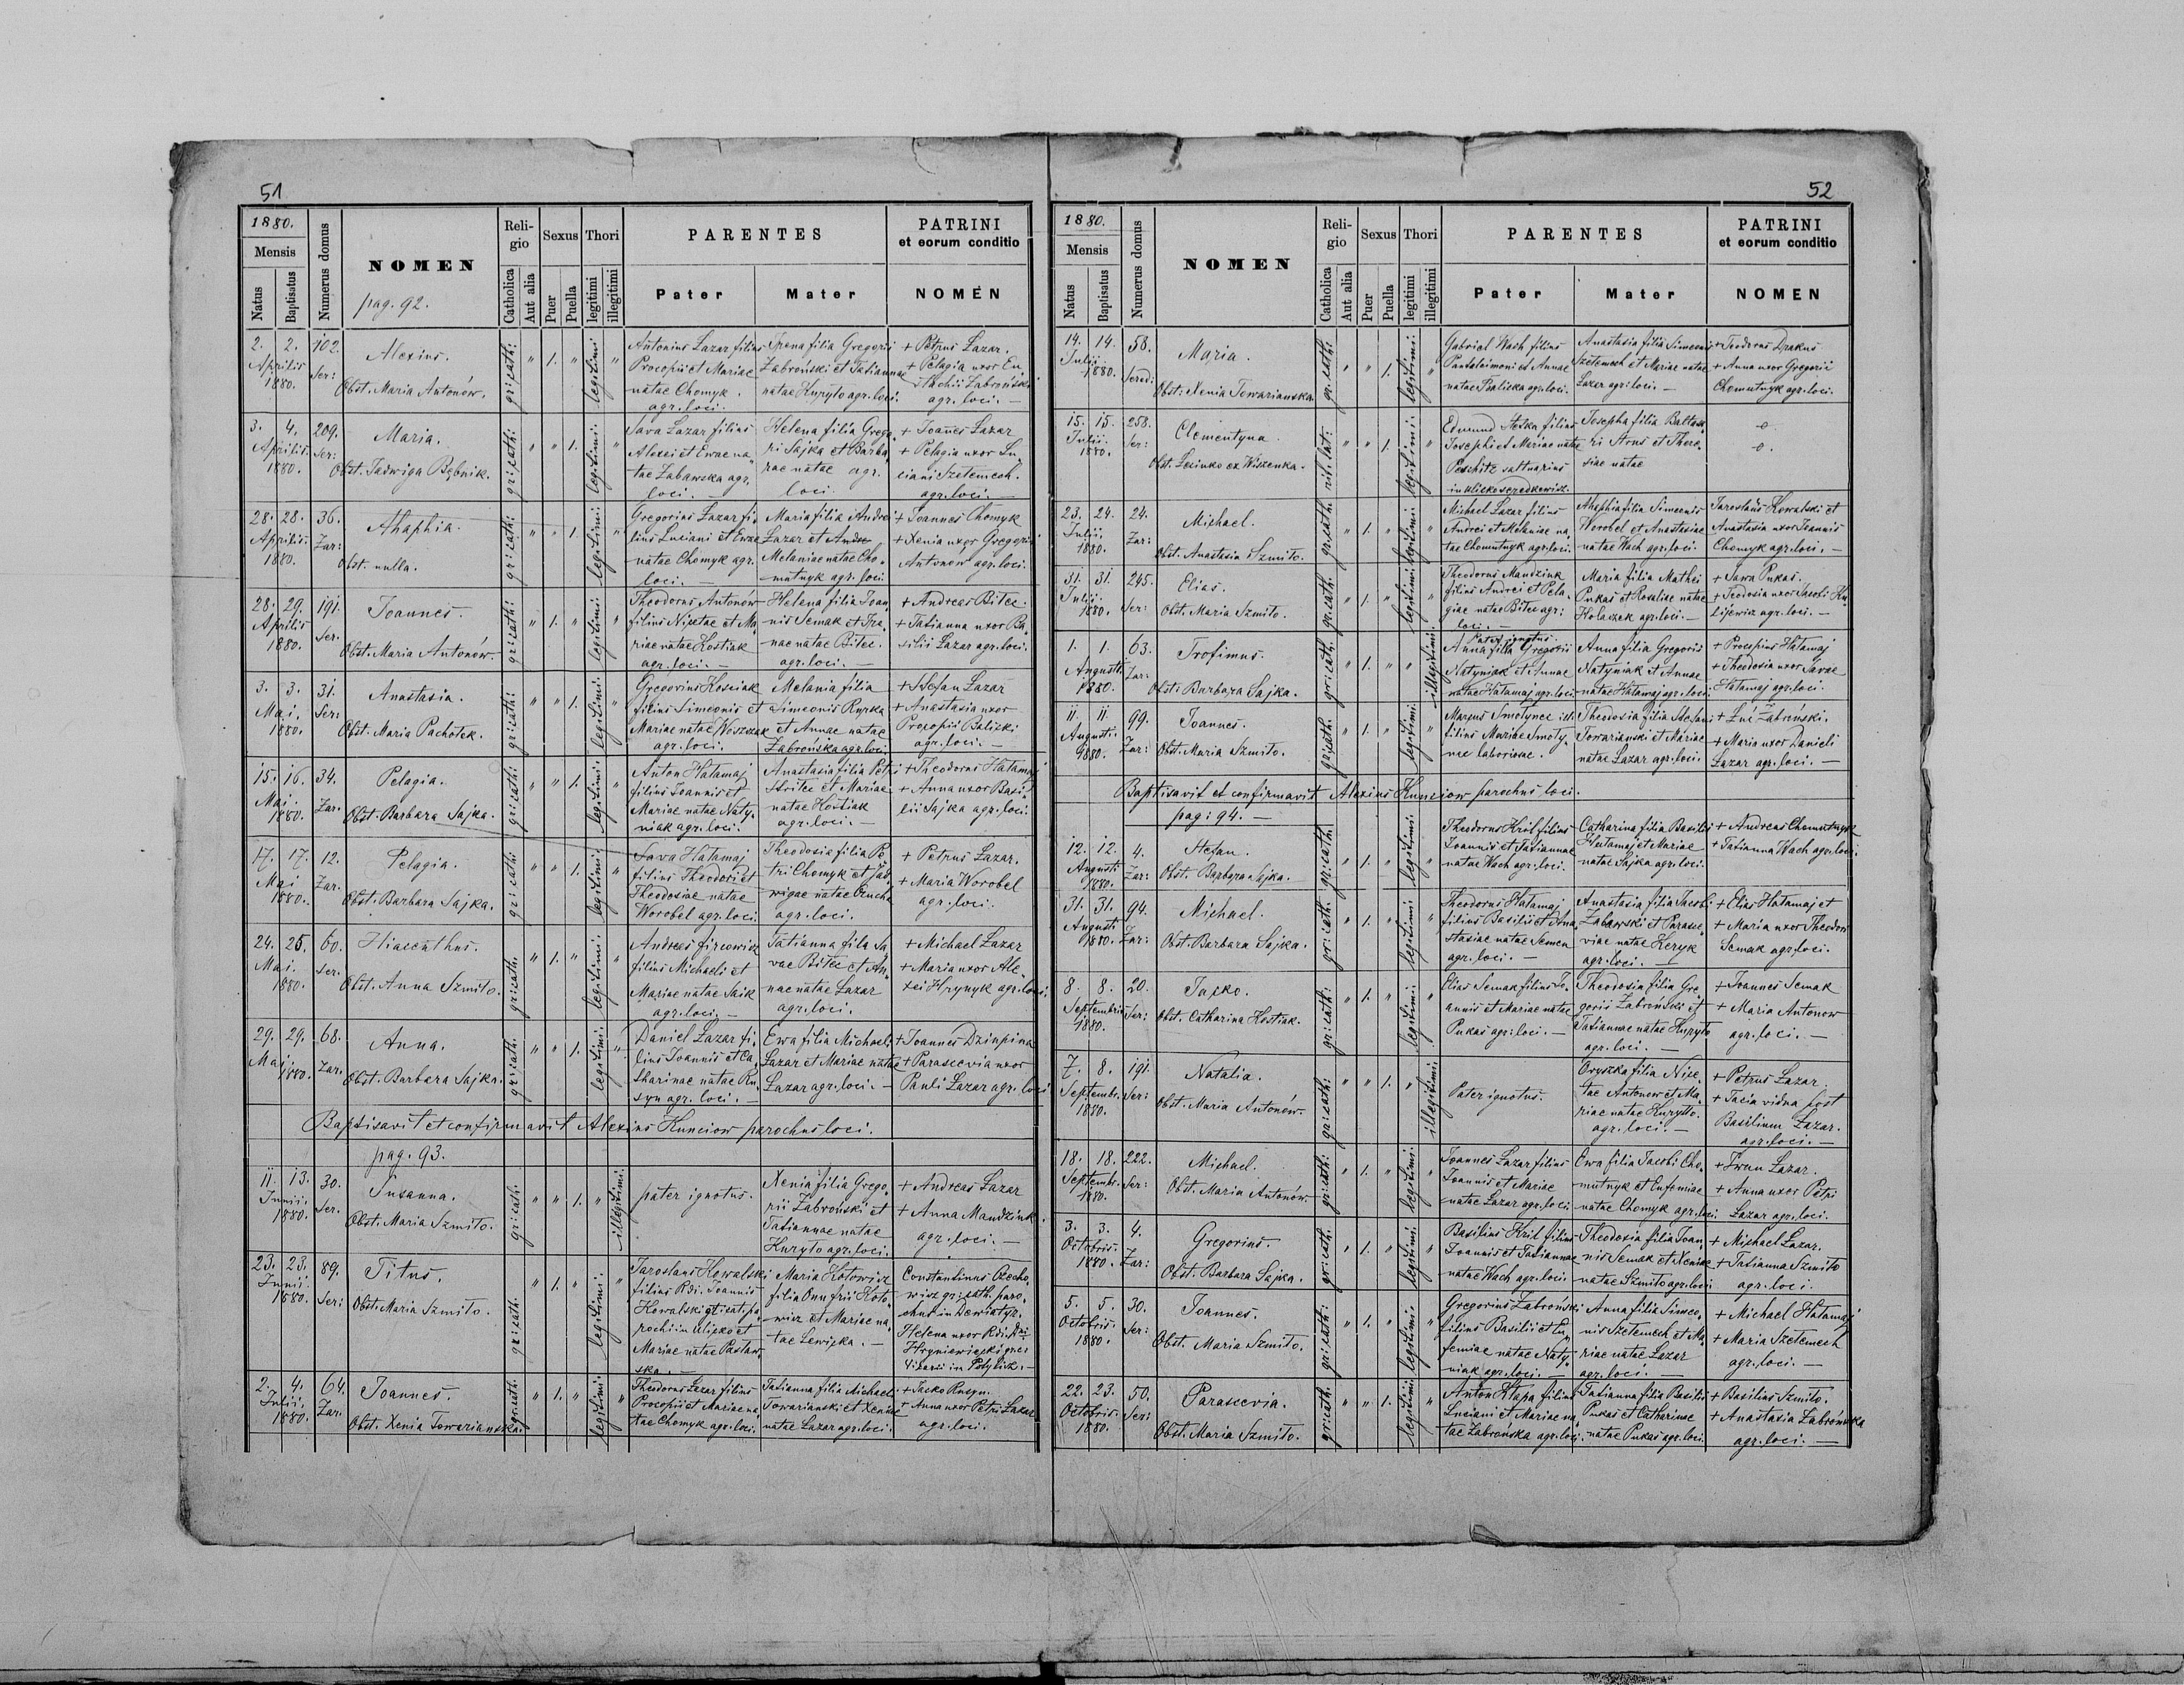 51
1880.
Mensis
Natus
Baptisatus
Numerus domus
NOMEN
pag. 92.
Religio
Catholica
Aut alia
Sexus
Puer
Puella
Thori
legitimi
illegitimi
PARENTES
Pater
Mater
PATRINI
et eorum conditio
NOMEN
2. 2. 102.
Aprilis Ser:
1880.
Alexius.
Obst. Maria Antonów.
gr: cath: " 1. " legitimi "
Antonius Lazar filius
Procopii et Mariae
natae Chomyk.
agr. loci.
Irena filia Gregorii
Zabroński et Tatiannae
natae Kuryło agr. loci.
+ Petrus Lazar.
+ Pelagia uxor Eu„
stachii Zabroński
agr. loci. —
3. 4. 209.
Aprilis. Ser:
1880.
Maria.
Obst. Jedwiga Bębnik.
gr: cath: " " 1. legitimi: "
Sava Lazar filius
Alexii et Ewae na„
tae Zabawska agr.
loci. —
Helena filia Grego„
ri Sajka et Barba„
rae natae agr.
loci.
+ Joannes Lazar
+ Pelagia uxor Lu„
ciani Szetemech.
agr. loci. —
28. 28. 36.
Aprilis. Zar:
1880.
Ahaphia.
Obst. nulla.
gr: cath: " " 1. legitimi: "
Gregorius Lazar fi„
lius Luciani et Ewae
natae Chomyk agr.
loci. —
Maria filia Andrei
Lazar et
Melaniae natae Cho„
mutnyk agr. loci.
+ Joannes Chomyk
+ Xenia uxor Gregorii
Antonow agr. loci.
28. 29. 191.
Aprilis Ser.
1880.
Joannes.
Obst. Maria Antonów.
gr: cath: " 1. " legitimi: "
Theodorus Antonów
filius Nicetae et Ma„
riae natae Kostiak
agr. loci. —
Helena filia Joan„
nis Semak et Ira„
nae natae Bitec.
agr. loci. —
+ Andreas Bitec.
+ Tatianna uxor Ba„
silii Lazar agr. loci.
3. 3. 31.
Mai. Ser:
1880.
Anastasia.
Obst. Maria Pachotek.
gr: cath: " " 1. legitimi: "
Gregorius Kosciak
filius Simeonis et
Mariae natae Woszczak
agr. loci.
Melania filia
Simeonis Rurka
et Annae natae
Zabrońska agr. loci.
+ Stefan Lazar
+ Anastasia uxor
Procopii Balicki
agr. loci. —
15. 16. 34.
Mai. Zar.
1880.
Pelagia.
Obst. Barbara Sajka.
gr: cath: " " 1. legitimi: "
Anton Hatamaj
filius Joannis et
Mariae natae Naty„
niak agr. loci.
Anastasia filia Petri
et Mariae
natae Kostiak
agr. loci. —
+ Theodorus Hatamaj
+ Anna uxor Basi„
lii Sajka agr. loci.
17. 17. 12.
Mai Zar.
1880.
Pelagia.
Obst. Barbara Sajka.
gr: cath: " " 1. legitimi: "
Sava Hatamaj
filius Theodori et
Theodosiae natae
Worobel agr. loci.
Theodosia filia Pe
tri Chomyk et Jad„
wigae natae
agr. loci.
+ Petrus Lazar.
+ Maria Worobel
agr. loci.
24. 25. 60.
Mai. Ser.
1880.
Hiacenthus.
Obst. Anna Szmiło.
gr: cath. " 1. " legitimi: "
Andreas
filius Michaeli et
Mariae natae Saik
agr. loci. —
Tatianna fila Sa
vae Bitec et An„
nae natae Lazar
agr. loci.
+ Michael Lazar
+ Maria uxor Ale„
xei Hrynyk agr. loci.
29. 29. 68.
Maj Zar.
1880.
Anna.
Obst. Barbara Sajka.
gr: cath. " " 1. legitimi: "
Daniel Lazar fi„
lius Joannis et Ca„
tharinae natae Ru„
syn agr. loci. —
Ewa filia Michaeli
Lazar et Mariae natae
Lazar agr. loci. —
+ Joannes Dziupina
+ Parascevia uxor
Pauli Lazar agr. loci
Baptisavit et confirmavit Alexius Kunciow parochus loci.
pag. 93.
11. 13. 30.
Junii. Ser.
1880.
Susanna.
Obst. Maria Szmiło.
gr: cath. " " 1. " illegitimi:
pater ignotus.
Xenia filia Grego„
rii Zabroński et
Tatiannae natae
Kuryło agr. loci.
+ Andreas Lazar
+ Anna Mandziuk.
agr. loci. —
23. 23. 89.
Junii. Ser:
1880.
Titus.
Obst. Maria Szmiło.
gr: cath. " 1. " legitimi: "
Jaroslaus Kowalski
filius Rdi. Joannis
Kowalski gr. cat. pa„
rochi in Ulicko et
Mariae natae Pastaw„
ska. —
Maria Kotowicz
filia Onufrii Koto„
wicz et Mariae na„
tae Lewicka. —
Constantinus
wicz gr: cath. paro„
chus in
Helena uxor Rdi.
Hryniewiecki
in Potylicz. —
2. 4. 64.
Julii. Zar.
1880.
Joannes.
Obst. Xenia Towarianska.
gr: cath. " 1. " legitimi "
Theodorus Lazar filius
Procopii et Mariae na„
tae Chomyk agr. loci.
Tatianna filia Michaeli
Towarianski et Xeniae
natae Lazar agr. loci.
+ Jacko Rusyn.
+ Anna uxor Petri Lazar
agr. loci.
52
1880.
Mensis
Natus
Baptisatus
Numerus domus
NOMEN
Religio
Catholica
Aut alia
Sexus
Puer
Puella
Thori
legitimi
illegitimi
PARENTES
Pater
Mater
PATRINI
et eorum conditio
NOMEN
14. 14. 58.
Julii Sered:
1880.
Maria.
Obst: Xenia Towarianska.
gr: cath: " " 1. legitimi: "
Gabriel Wach filius
Pantaleimoni et Annae
natae Balicka agr. loci.
Anastasia filia Simeonis
Szetemech et Mariae natae
Lazar agr. loci. —
+ Teodorus Drakus
+ Anna uxor Gregorii
Chomutnyk agr. loci.
15. 15. 258.
Julii. Ser:
1880.
Clementyna.
Obst. Lesinko ex Wiszenka.
rit. lat: " " 1. legitimi: "
Edmund filius
Josephi et Mariae natae
Peschitz saltuarius
in
Josepha filia Baltasa„
ri Arus et There„
siae natae
-o-
-o-
23. 24. 24.
Julii. Zar:
1880.
Michael.
Obst. Anastasia Szmiło.
gr. cath. " 1. " legitimi "
Michael Lazar filius
Andrei et Melaniae na„
tae Chomutnyk agr. loci.
Ahaphia filia Simeonis
Worobel et Anastasiae
natae Wach agr. loci.
Jaroslaus Kowalski et
Anastasia uxor Joannis
Chomyk agr. loci. —
31. 31. 245.
Julii Ser:
1880.
Elias.
Obst. Maria Szmiło.
gr: cath. " 1. " legitimi: "
Theodorus Mandziuk
filius Andrei et Pela„
giae natae Bitec agr:
loci. —
Maria filia Mathei
Pukas et Rosaliae natae
Holaczek agr. loci. —
+ Sawa Pukas.
+ Teodosia uxor Jacobi
agr. loci. —
1. 1. 63.
Augusti. Zar:
1880.
Trofimus.
Obst: Barbara Sajka.
gr: cath. " 1. " " illegitimi:
Pater ignotus.
Anna filia Gregorii
Natyniak et Annae
natae Hatamaj agr. loci.
Anna filia Gregorii
Natyniak et Annae
natae Hatamaj agr. loci.
+ Procopius Hatamaj
+ Theodosia uxor Savae
Hatamaj agr. loci.
11. 11. 99.
Augusti. Zar:
1880.
Joannes.
Obst. Maria Szmiło.
gr: cath. " 1. " legitimi: "
Marcus Smotynec
filius Mariae Smoty„
nec laboriosae.
Theodosia filia Stefani
Towarianski et Mariae
natae Lazar agr. loci.
+ Luć Zabroński.
+ Maria uxor Danieli
Lazar agr. loci. —
Baptisavit et confirmavit Alexius Kunciow parochus loci.
pag: 94. —
12. 12. 4.
Augusti Zar:
1880.
Stefan.
Obst. Barbara Sajka.
gr: cath. " 1. " legitimi: "
Theodorus Kril filius
Joannis et Tatiannae
natae Wach agr. loci.
Catharina filia Basilii
Hatamaj et Mariae
natae Sajka agr. loci.
+ Andreas Chomutnyk
+ Tatianna Wach agr. loci.
31. 31. 94.
Augusti Zar:
1880.
Michael.
Obst. Barbara Sajka.
gr: cath. " 1. " legitimi "
Theodorus Hatamaj
filius Basilii et Ana„
stasiae natae Semen
agr. loci. —
Anastasia filia Jacobi
Zabawski et Parasce„
viae natae Keryk
agr. loci. —
+ Elias Hatamaj et
+ Maria uxor Theodori
Semak agr. loci.
8. 8. 20.
Septembris Ser:
1880.
Jacko.
Obst. Catharina Kostiak.
gr: cath: " 1. " legitimi: "
Elias Semak filius Jo„
annis et Mariae natae
Pukas agr. loci. —
Theodosia filia Gre„
gorii Zabroński et
Tatiannae natae Kuryło
agr. loci. —
+ Joannes Semak
+ Maria Antonow
agr. loci. —
7. 8. 191.
Septembr. Ser:
1880.
Natalia.
Obst. Maria Antonów.
gr: cath: " " 1. " illegitimi:
Pater ignotus.
Oryszka filia Nice„
tae Antonow et Ma„
riae natae Kuryłło.
agr. loci. —
+ Petrus Lazar.
+ Tacia vidua post
Basilium Lazar.
agr. loci. —
18. 18. 222.
Septemb. Ser:
1880.
Michael.
Obst. Maria Antonów.
gr: cath: " 1. " legitimi: "
Joannes Lazar filius
Joannis et Mariae
natae Lazar agr. loci.
Ewa filia Jacobi Cho„
mutnyk et Eufemiae
natae Chomyk agr. loci.
+ Iwan Lazar.
+ Anna uxor Petri
Lazar agr. loci.
3. 3. 4.
Octobris. Zar:
1880.
Gregorius.
Obst. Barbara Sajka.
gr: cath. " 1. " legitimi "
Basilius Kril filius
Joannis et Tatiannae
natae Wach agr. loci.
Theodosia filia Joan„
nis Semak et Xeniae
natae Szmiło agr. loci.
+ Michael Lazar.
+ Tatianna Szmiło
agr. loci.
5. 5. 30.
Octobris. Ser:
1880.
Joannes.
Obst. Maria Szmiło.
gr: cath: " 1. " legitimi "
Gregorius Zabroński
filius Basilii et Eu„
femiae natae Naty„
niak agr. loci. —
Anna filia Simeo„
nis Szetemech et Ma„
riae natae Lazar
agr. loci. —
+ Michael Hatamaj
+ Maria Szetemech
agr. loci. —
22. 23. 50.
Octobris. Ser:
1880.
Parascevia.
Obst. Maria Szmiło.
gr: cath " " 1. legitimi "
Anton Kłapa filius
Luciani et Mariae na„
tae Zabrońska agr. loci.
Tatianna filia Basilii
Pukas et Catharinae
natae Pukas agr. loci.
+ Basilius Szmiło.
+ Anastasia Zabrońska
agr. loci. —